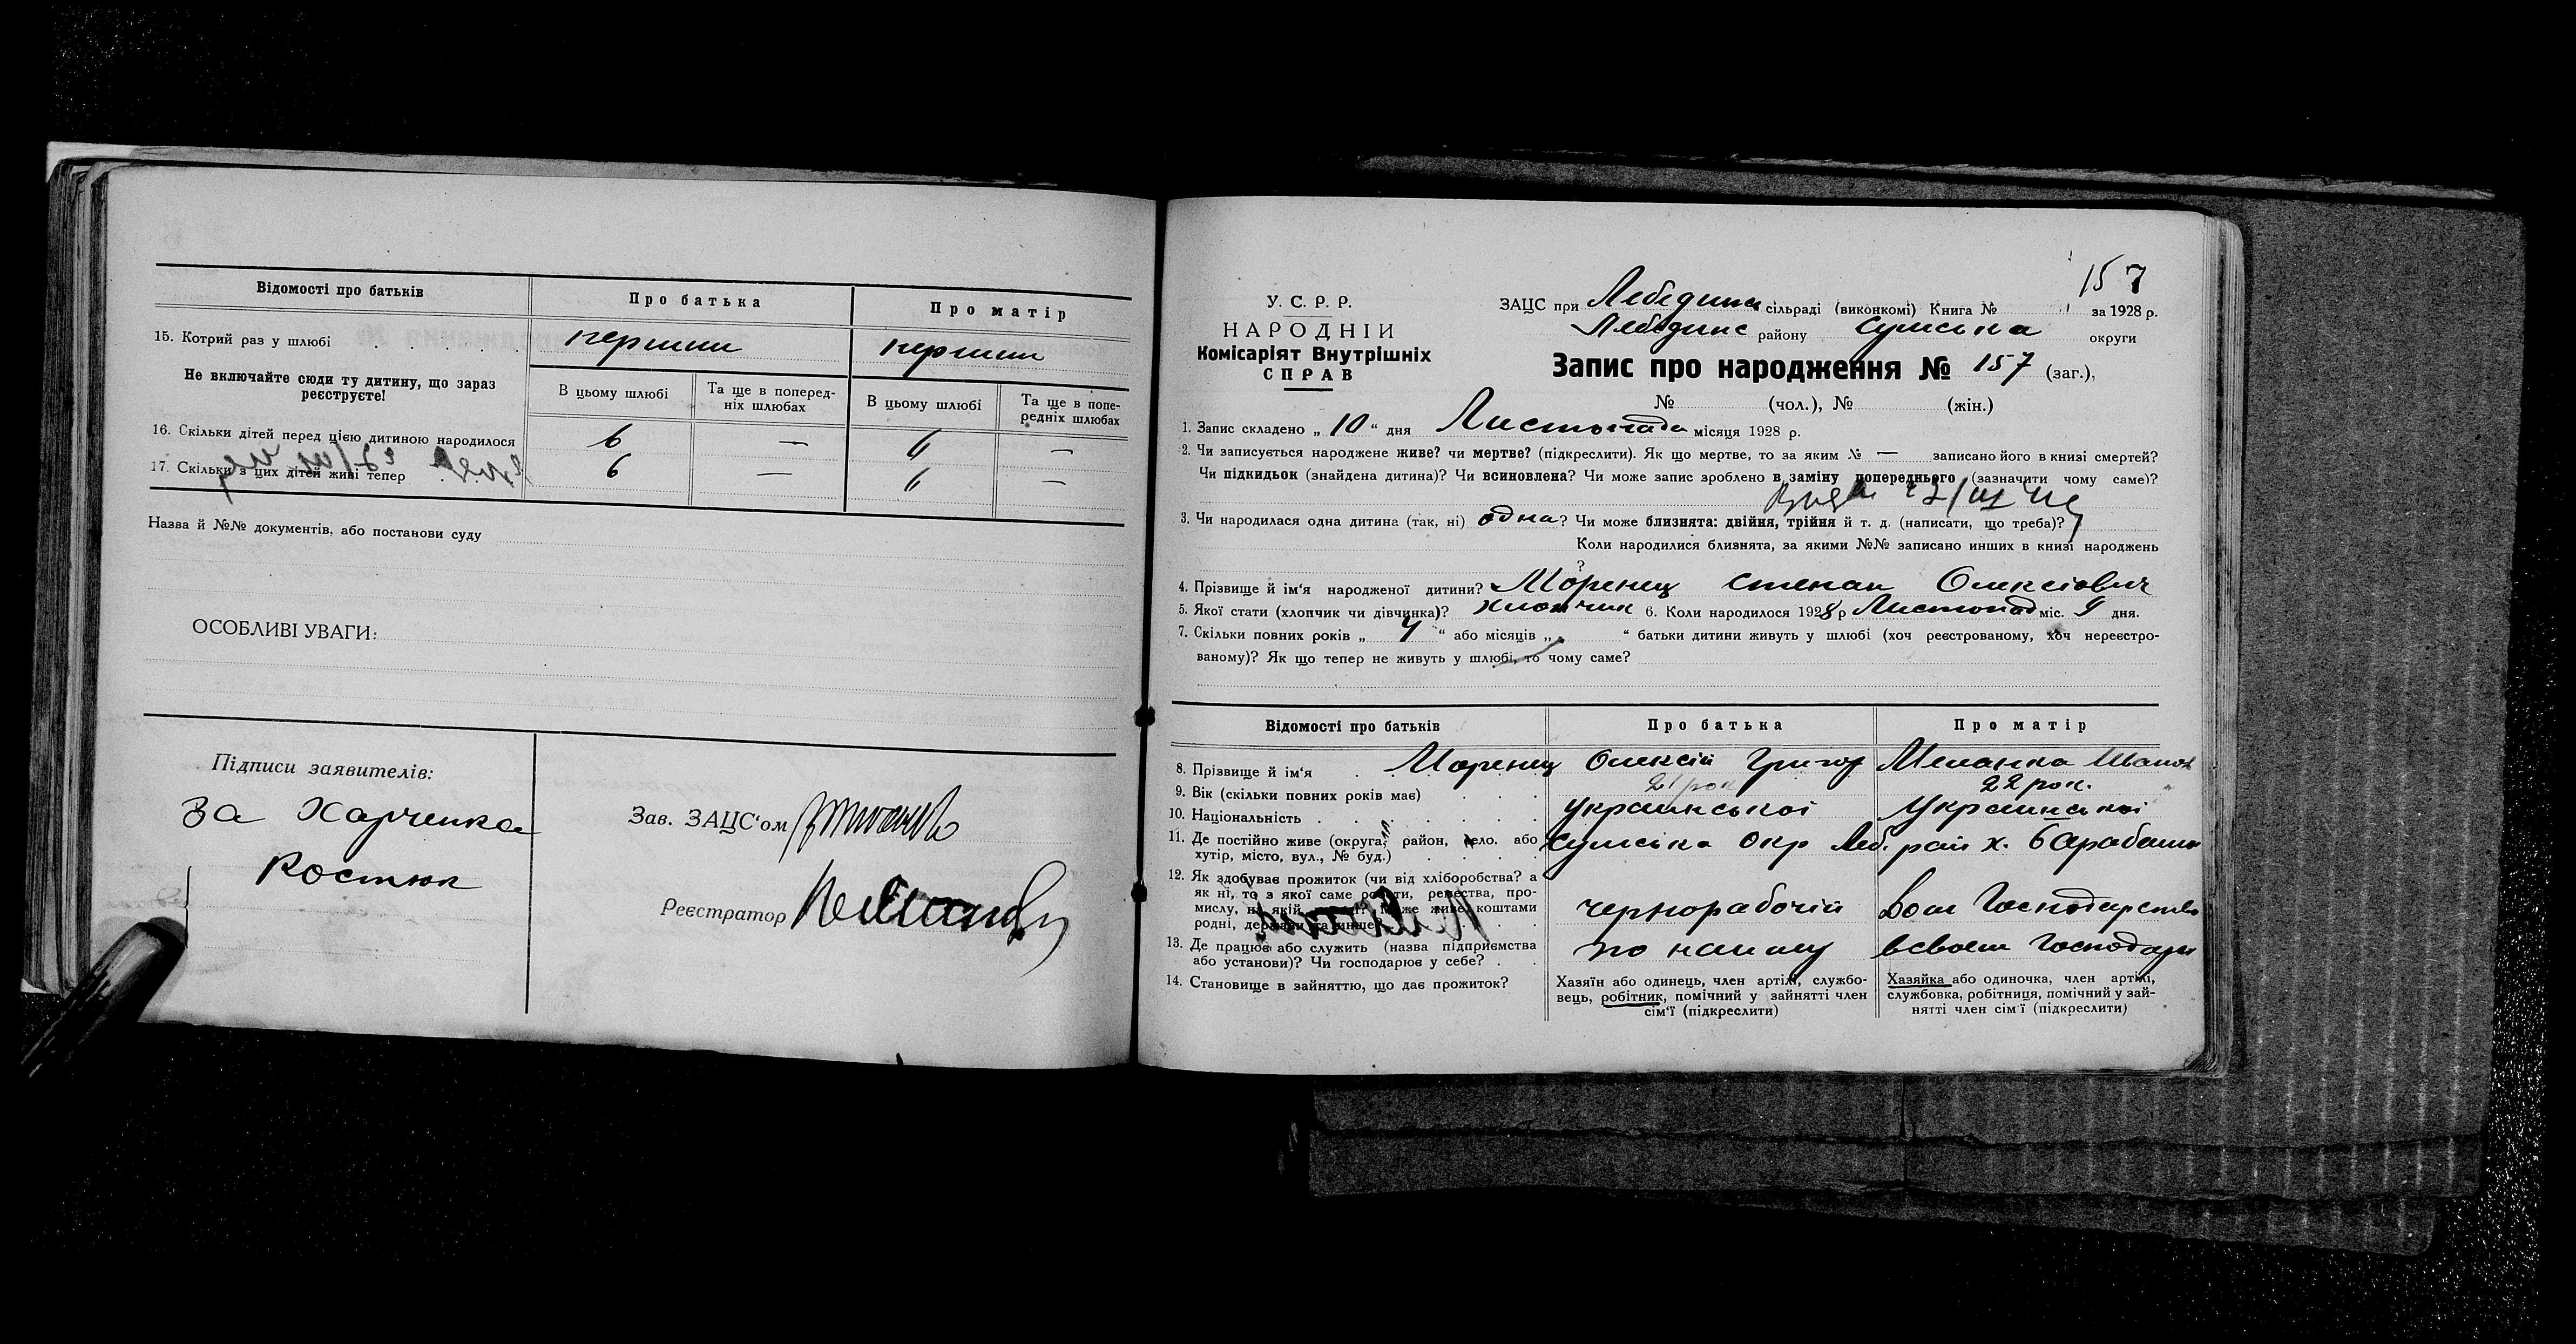 Відомості про батьків
Про батька
Про матір
15. Котрий раз у шлюбі
перший
перший
Не включайте сюди ту дитину, що зараз
реєструєте!
В цьому шлюбі
Та ще в поперед-
ніх шлюбах
В цьому шлюбі
Та ще в попе-
редніх шлюбах
16. Скільки дітей перед цією дитиною народилося
6
—
—
17. Скільки з цих дітей живі тепер
6
—
—
Назва й №№ документів, або постанови суду
ОСОБЛИВІ УВАГИ:
Підписи заявителів:
За Харченка
Костюк
Зав. ЗАЦС'ом
Реєстратор
157
У. С. Р. Р.
НАРОДНІЙ
Комісаріят Внутрішніх
СПРАВ
ЗАЦС при Лебединс сільраді (виконкомі) Книга № за 1928 р.
Лебединс району Сумська округи
Запис про народження № 157 (заг.),
№ (чол.), № (жін.)
1. Запис складено „ 10 “ дня Листопада місяця 1928 р.
2. Чи записується народжене живе? чи мертве? (підкреслити). Як що мертве, то за яким № — записано його в книзі смертей?
Чи підкидьок (знайдена дитина)? Чи всиновлена? Чи може запис зроблено в заміну попереднього (зазначити чому саме)?
3. Чи народилася одна дитина (так, ні) одна? Чи може близнята: двійня, трійня й т. д. (написати, що треба)?
Коли народилися близнята, за якими №№ записано инших в книзі народжень
?
4. Прізвище й ім'я народженої дитини? Моренец Степан Олексіович
5. Якої стати (хлопчик чи дівчинка)? хлопчик 6. Коли народилося 1928 р Листопад міс. 9 дня.
7. Скільки повних років „ “ або місяців „ “ батьки дитини живуть у шлюбі (хоч реєстрованому, хоч нереєстро-
ваному)? Як що тепер не живуть у шлюбі, то чому саме?
Відомості про батьків
Про батька
Про матір
8. Прізвище й ім'я
Моренец Олексій Григор
Меланка Іванов
9. Вік (скільки повних років має)
21 рок
22 рок.
10. Національність
Української
Української
11. Де постійно живе (округа, район, село, або
хутір, місто, вул., № буд.)
Сумська Окр Леб. рай х. Барабаши
12. Як здобуває прожиток (чи від хліборобства? а
як ні, то з якої саме роботи, ремества, про-
мислу, на якій посаді? Може живе коштами
родні, держави та инше)
чернорабочій
Дом Господарство
13. Де працює або служить (назва підприємства
або установи)? Чи господарює у себе?
по найму
всвоем Господарс
14. Становище в зайняттю, що дає прожиток?
Хазяїн або одинець, член артілі, службо-
вець, робітник, помічний у зайнятті член
сім'ї (підкреслити)
Хазяйка або одиночка, член артілі,
службовка, робітниця, помічний у зай-
нятті член сім'ї (підкреслити)